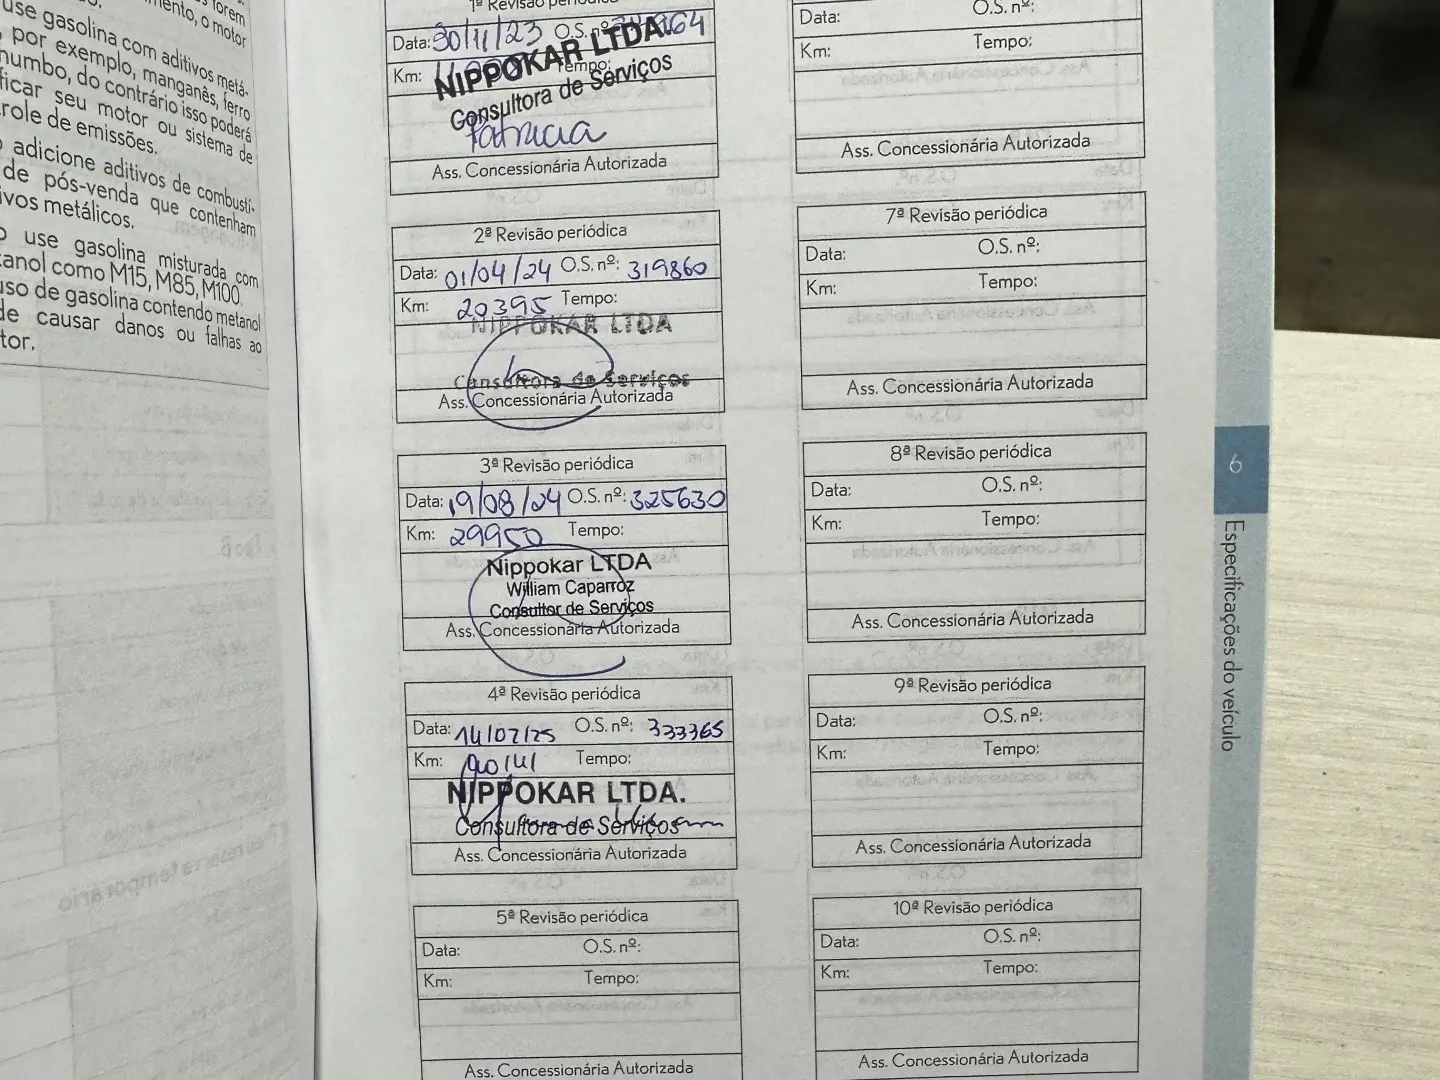 use gasolina com aditivos metá-
por exemplo, manganês, ferro
humbo, do contrário isso poderá
ficar seu motor ou sistema de
role de emissões.
adicione aditivos de combustí-
de pós-venda que contenham
ivos metálicos.
use gasolina misturada com
anol como M15, M85, M100.
uso de gasolina contendo metanol
de causar danos ou falhas ao
tor.
1ª Revisão
Data: 30/11/23 O.S. nº
Km: Tempo:
NIPPOKAR LTDA.
Consultora de Serviços
Patricia
Ass. Concessionária Autorizada
2ª Revisão periódica
Data: 01/04/24 O.S. nº: 319860
Km: 20395 Tempo:
NIPPOKAR LTDA
Consultora de Serviços
Ass. Concessionária Autorizada
3ª Revisão periódica
Data: 19/08/24 O.S. nº: 325630
Km: 29950 Tempo:
Nippokar LTDA
William Caparroz
Consultor de Serviços
Ass. Concessionária Autorizada
4ª Revisão periódica
Data: 14/02/25 O.S. nº: 333365
Km: 40141 Tempo:
NIPPOKAR LTDA.
Consultora de Serviços
Ass. Concessionária Autorizada
5ª Revisão periódica
Data: O.S. nº:
Km: Tempo:
Ass. Concessionária Autorizada
Data: O.S. nº:
Km: Tempo:
Ass. Concessionária Autorizada
7ª Revisão periódica
Data: O.S. nº:
Km: Tempo:
Ass. Concessionária Autorizada
8ª Revisão periódica
Data: O.S. nº:
Km: Tempo:
Ass. Concessionária Autorizada
9ª Revisão periódica
Data: O.S. nº:
Km: Tempo:
Ass. Concessionária Autorizada
10ª Revisão periódica
Data: O.S. nº:
Km: Tempo:
Ass. Concessionária Autorizada
6
Especificações do veículo